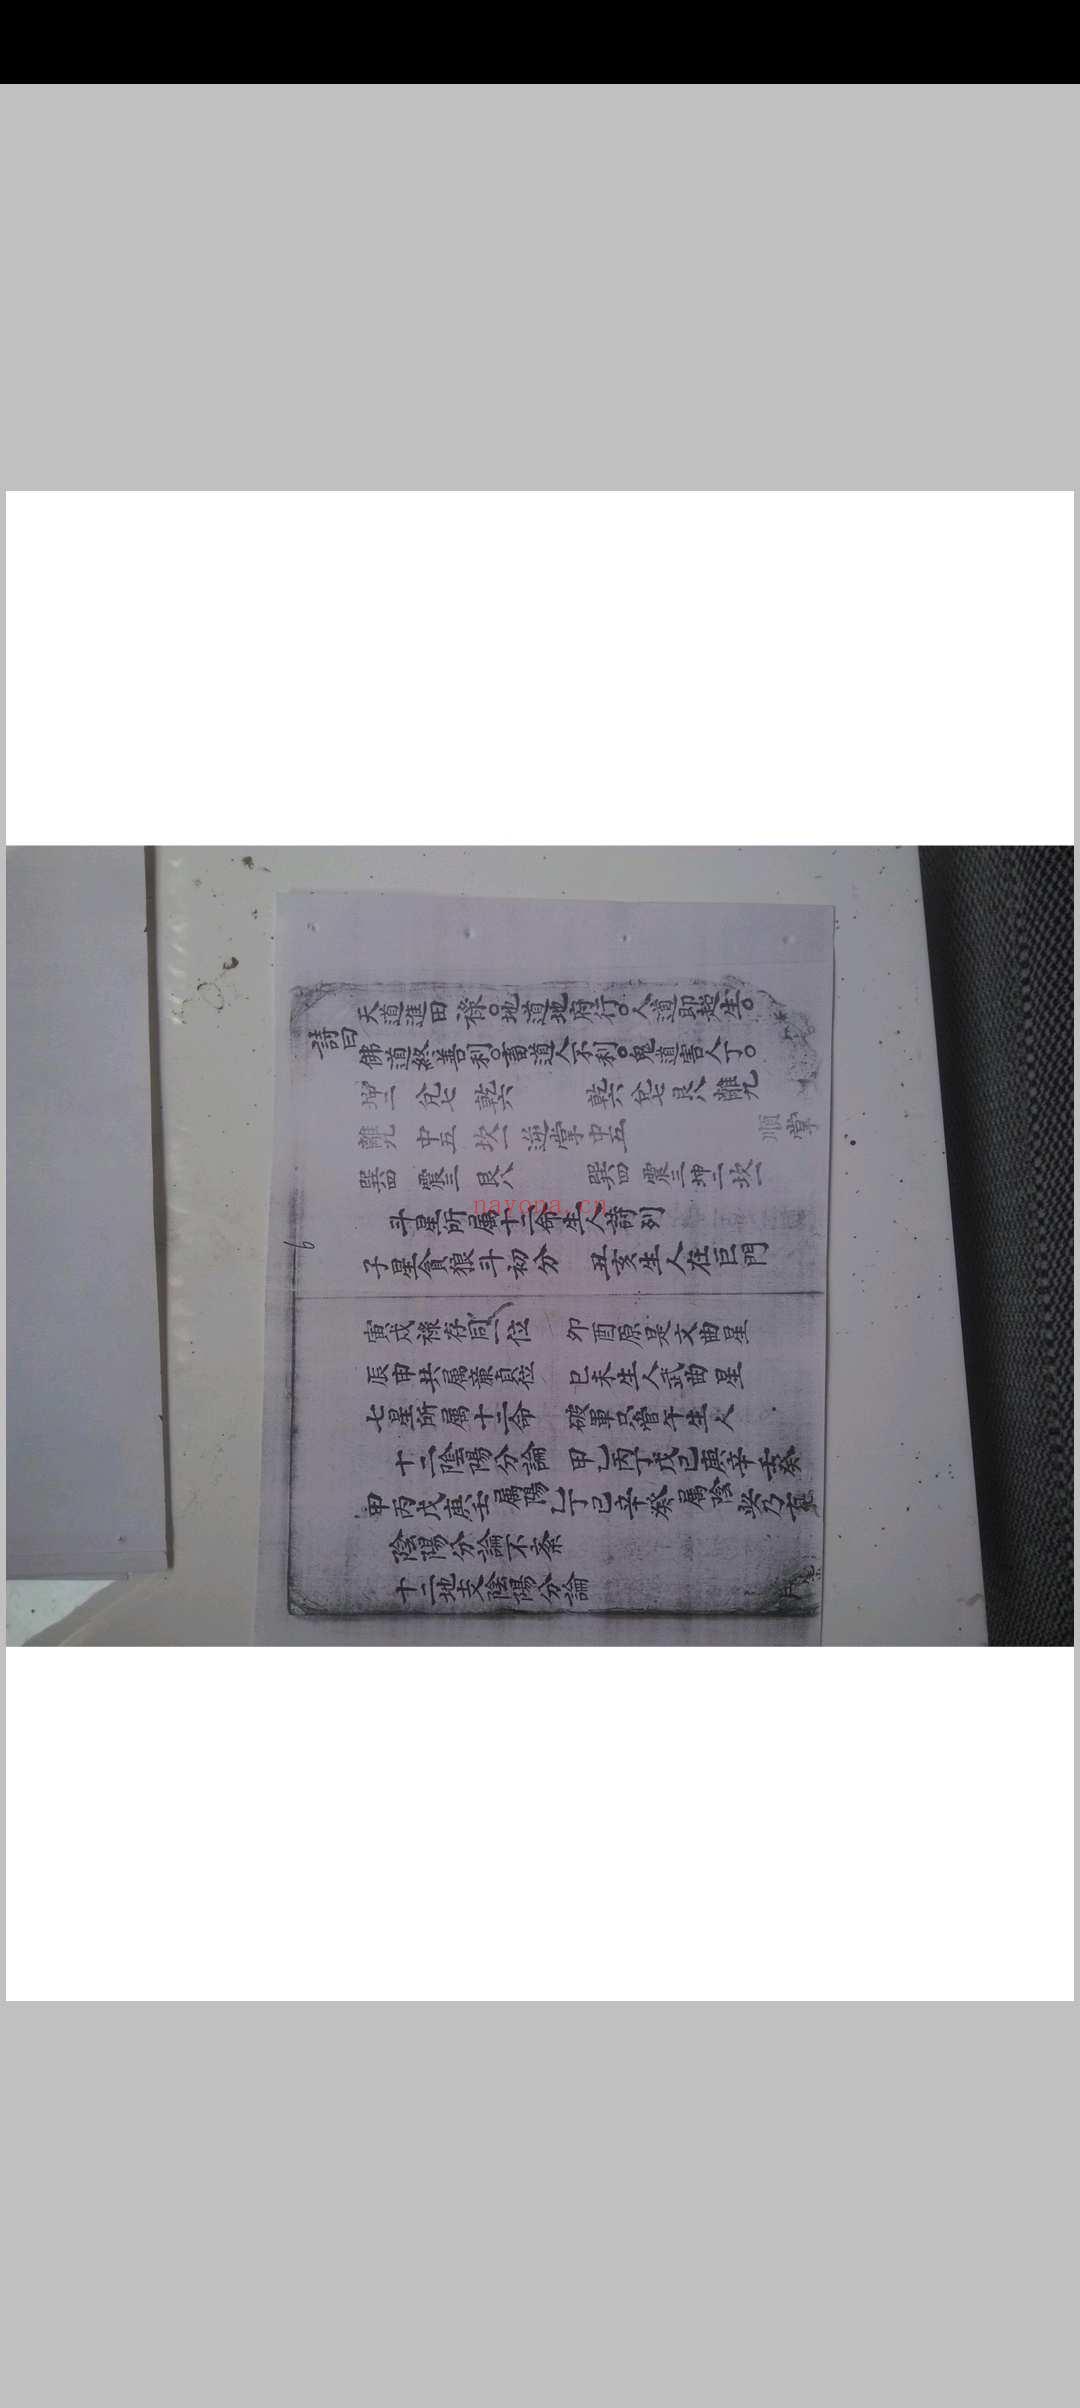 天道進田祿。地道地府行。人道即超生。
詩曰
佛道終善利。畜道人不利。鬼道害人丁。
坤二 兌七 乾六 乾六 兌七 艮八 離九
離九 中五 坎一 逆掌中五 順掌
巽四 震三 艮八 巽四 震三 坤二 坎一
斗星所属十二命生人詩列
子星貪狼斗初分 丑亥生人在巨門
寅戌祿存同一位 卯酉原是文曲星
辰申共属廉貞位 巳未生人武曲星
七星所属十二命 破軍只當午生人
十二陰陽分論 甲乙丙丁戊己庚辛壬癸
甲丙戊庚壬属陽 乙丁己辛癸属陰 此乃
陰陽分論不紊
十二地支陰陽分論
6
nayona.cn